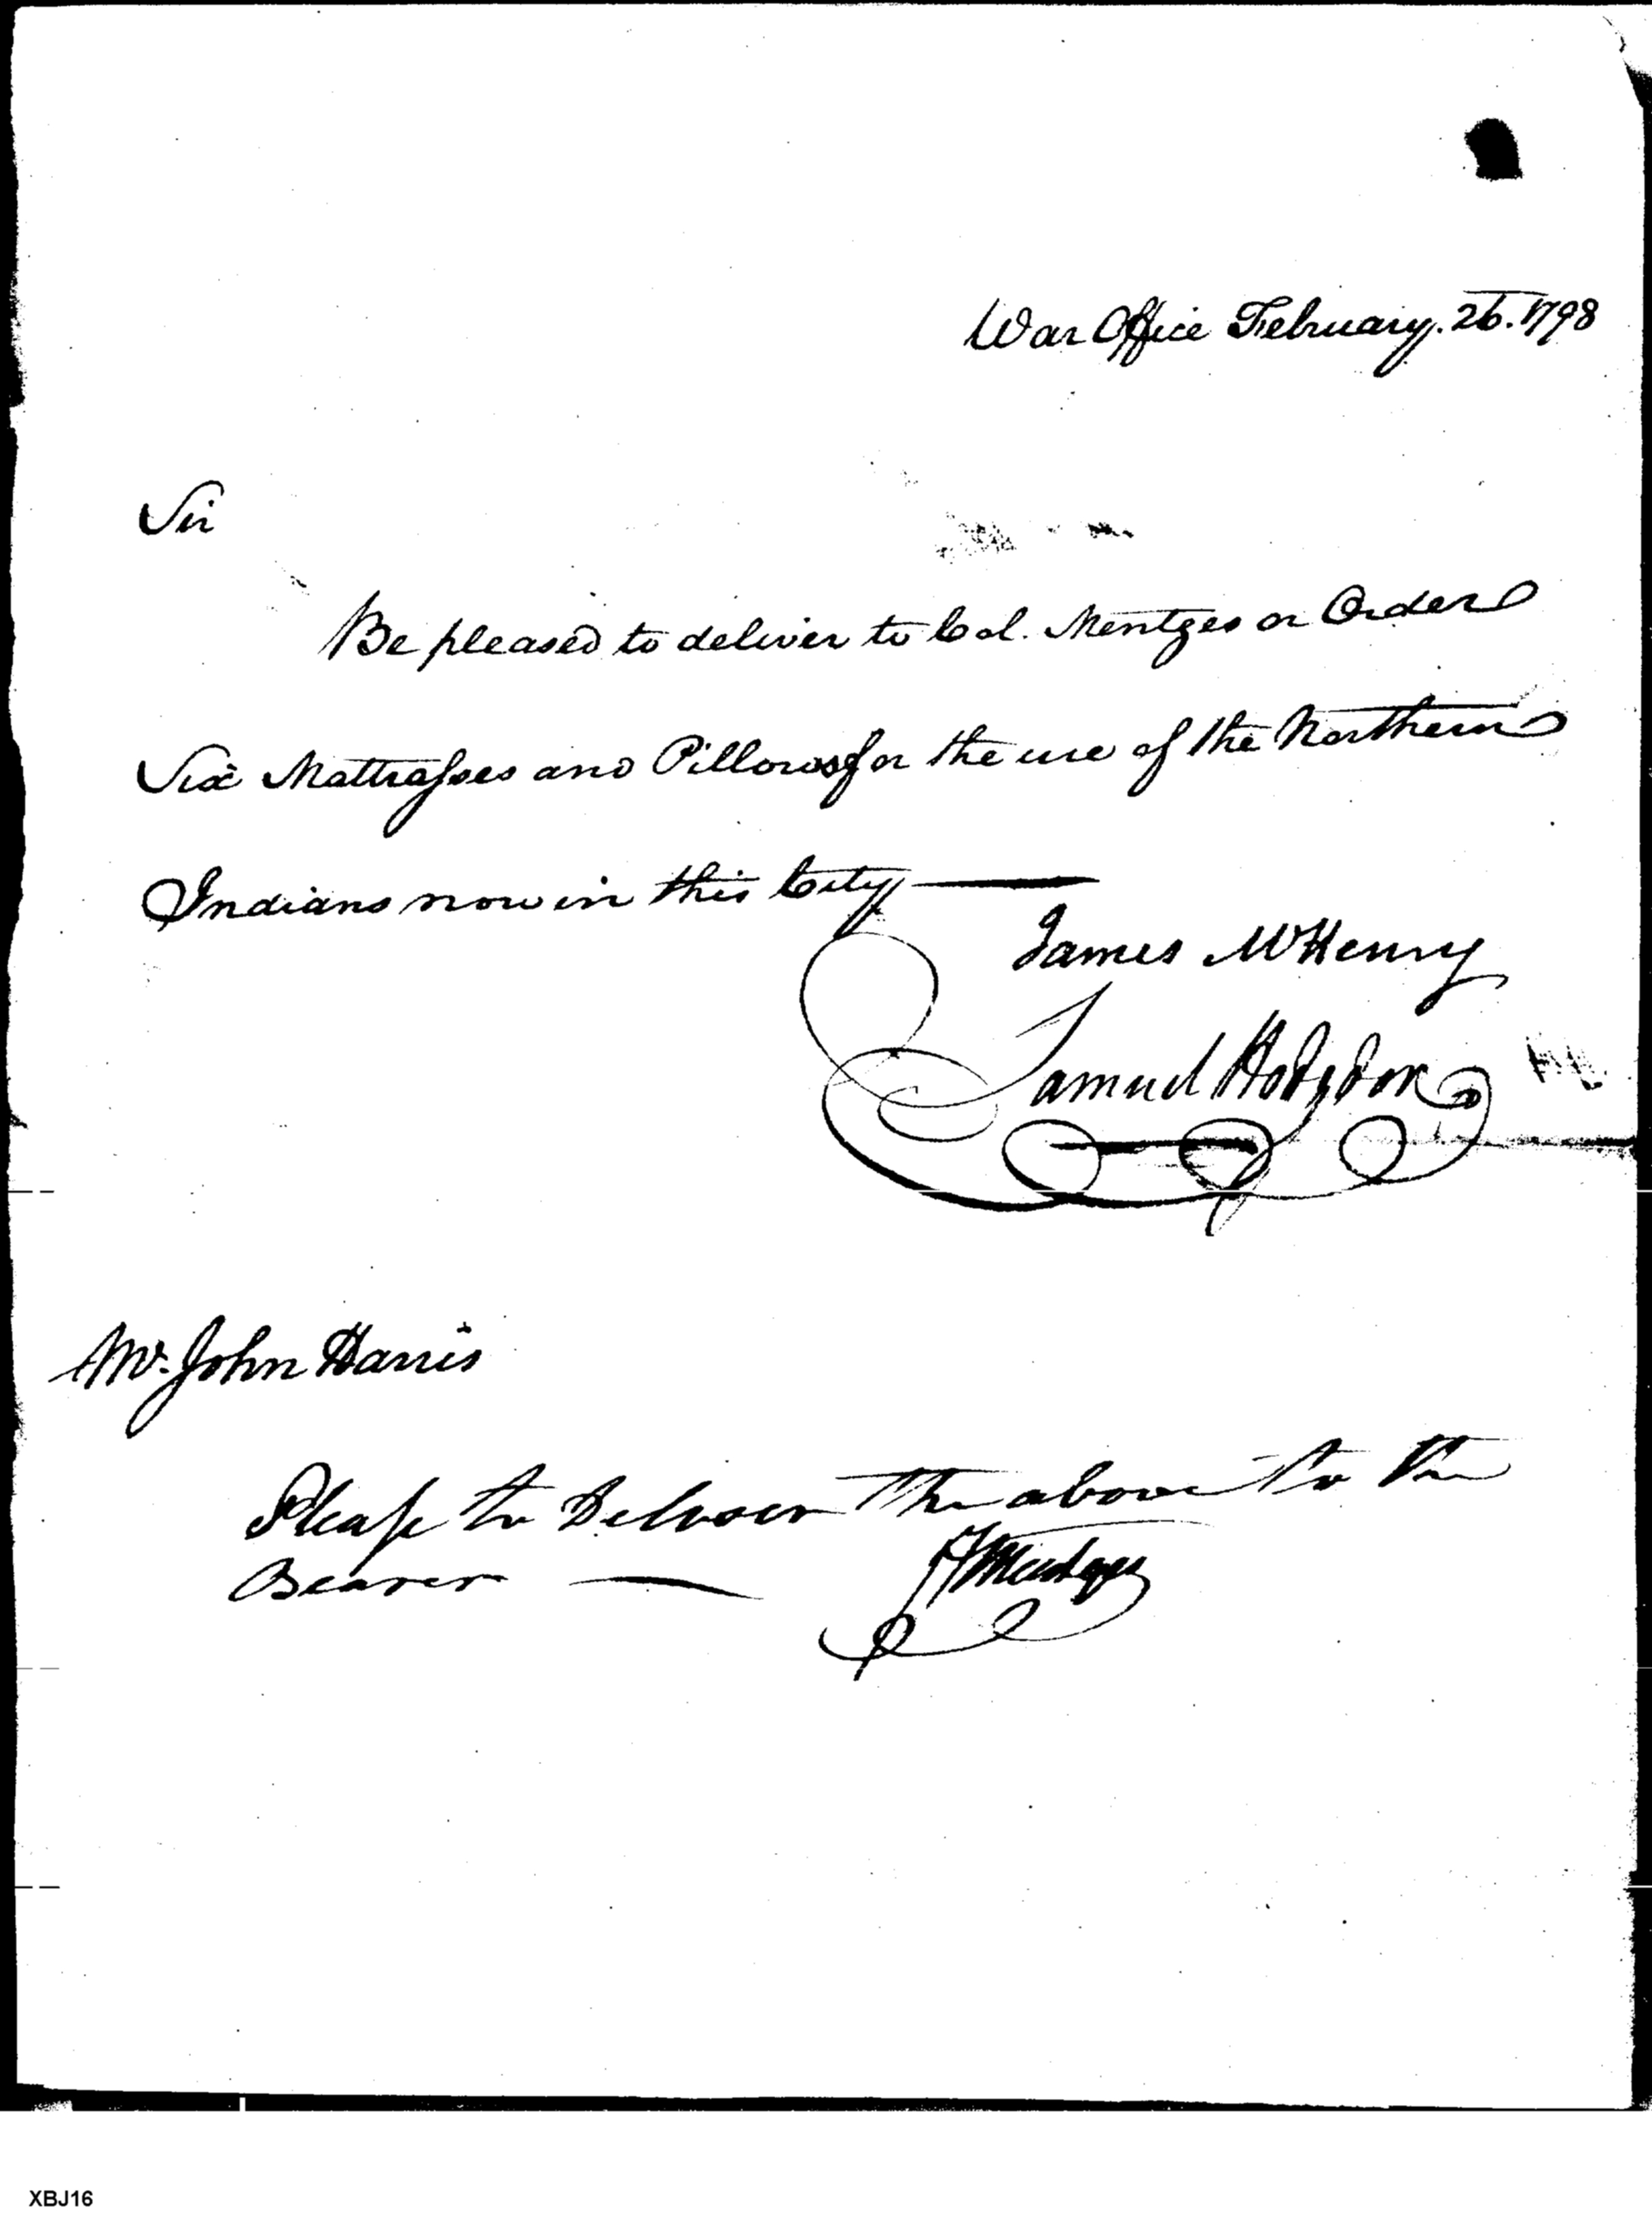 War Office February. 26. 1798
Sir
Be pleased to deliver to Col. Mentges or Order
Six Mattrasses and Pillows for the use of the Northern
Indians now in this City
James McHenry
Samuel Hodgdon
Mr. John Harris
Please to Deliver The above to the
Bearer
FMentges
XBJ16